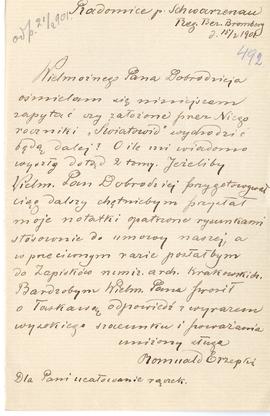 Radomice p. Schwarzenau
Reg. Bez. Bromberg
odp. 21/2 901
d. 15/2 1901
492
Wielmożnego Pana Dobrodzieja
ośmielam się niniejszem
zapytać czy założone przez Niego
roczniki „Światowid" wychodzić
będą dalej? O ile mi wiadomo
wyszły dotąd 2 tomy. Jeżeliby
Wielm. Pan Dobrodziej przygotowywał
ciąg dalszy chętniebym przysłał
moje notatki opatrzone rysunkami
stosownie do umowy naszej, a
w przeciwnym razie posłałbym
do Zapisków numiz. arch. Krakowskich.
Bardzobym Wielm. Pana prosił
o łaskawą odpowiedź z wyrazem
wysokiego szacunku i poważania
uniżony sługa
Romuald Erzepki
Dla Pani ucałowanie rączek.